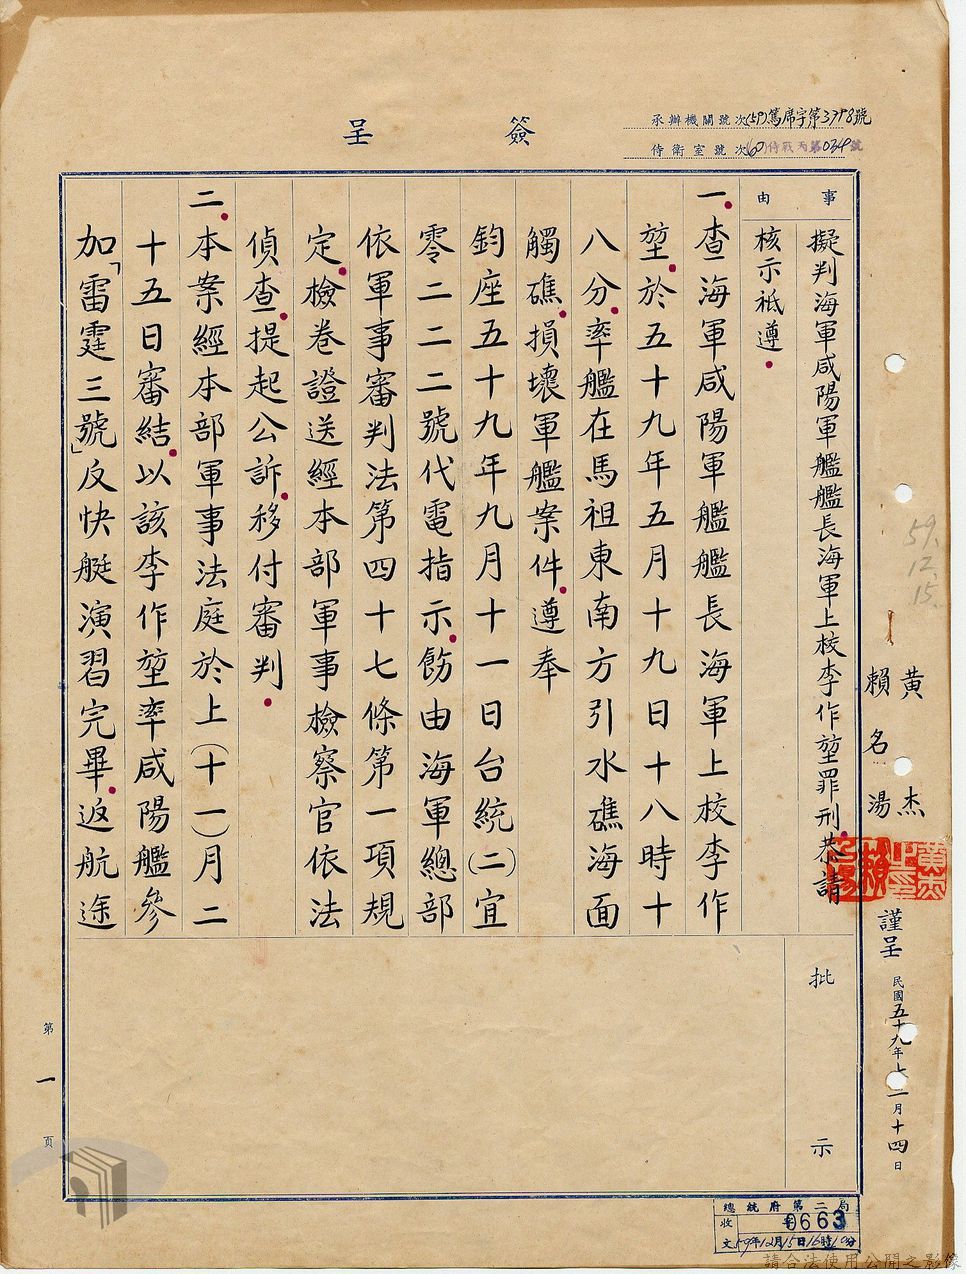 簽呈
承辦機關號次(59)篤席字第3798號
侍衛室號次(60)侍戰丙第034號
事由
擬判海軍咸陽軍艦艦長海軍上校李作堃罪刑恭請
核示祗遵
一查海軍咸陽軍艦艦長海軍上校李作
堃於五十九年五月十九日十八時十
八分率艦在馬祖東南方引水礁海面
觸礁損壞軍艦案件遵奉
鈞座五十九年九月十一日台統(二)宜
零二二二號代電指示飭由海軍總部
依軍事審判法第四十七條第一項規
定檢卷證送經本部軍事檢察官依法
偵查提起公訴移付審判
二本案經本部軍事法庭於上(十一)月二
十五日審結以該李作堃率咸陽艦參
加「雷霆三號」反快艇演習完畢返航途
批示
黃杰
賴名湯
謹呈
民國五十九年十二月十四日
59.12.15.
第一頁
總統府第二局
收文
0663
59年12月15日16時10分
請合法使用公開之影像